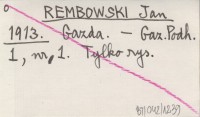 REMBOWSKI Jan
1913. Gazda. – Gaz. Podh.
1, nr 1. Tylko rys.